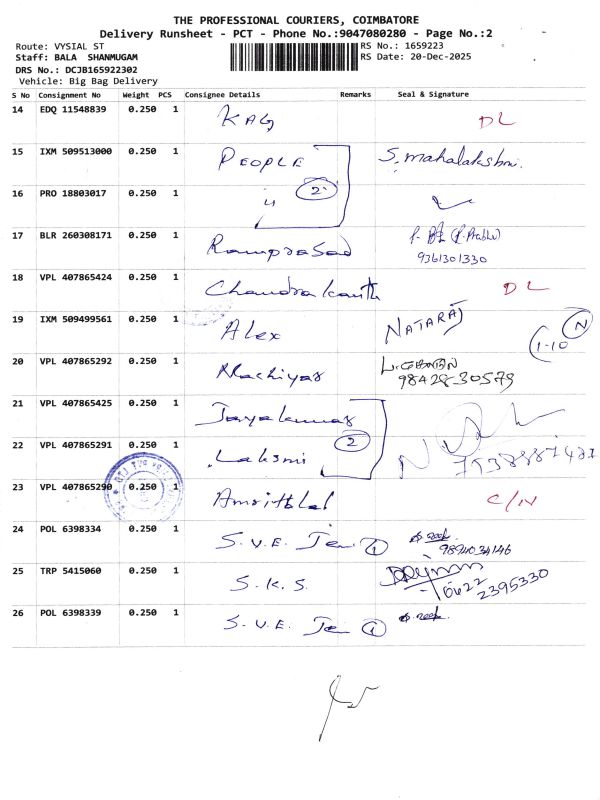 THE PROFESSIONAL COURIERS, COIMBATORE
Delivery Runsheet - PCT - Phone No.:9047080280 - Page No.:2
Route: VYSIAL ST RS No.: 1659223
Staff: BALA SHANMUGAM RS Date: 20-Dec-2025
DRS No.: DCJB165922302
Vehicle: Big Bag Delivery
S No Consignment No Weight PCS Consignee Details Remarks Seal & Signature
14 EDQ 11548839 0.250 1 KAG DL
15 IXM 509513000 0.250 1 PEOPLE S. mahalakshmi.
16 PRO 18803017 0.250 1 " 2
17 BLR 260308171 0.250 1 Ramprasad (P. Prabhu)
9361301330
18 VPL 407865424 0.250 1 Chandrakanth DL
19 IXM 509499561 0.250 1 Alex NATARAJ 1-10 N
20 VPL 407865292 0.250 1 Nachiyar
9842830579
21 VPL 407865425 0.250 1 Jayakumar
22 VPL 407865291 0.250 1 Laksmi 2
23 VPL 407865290 0.250 1 Amrithlal C/N
24 POL 6398334 0.250 1 S.V.E. Tex 1
9894034146
25 TRP 5415060 0.250 1 S.K.S. 0422
2395330
26 POL 6398339 0.250 1 S.V.E. Tex 1